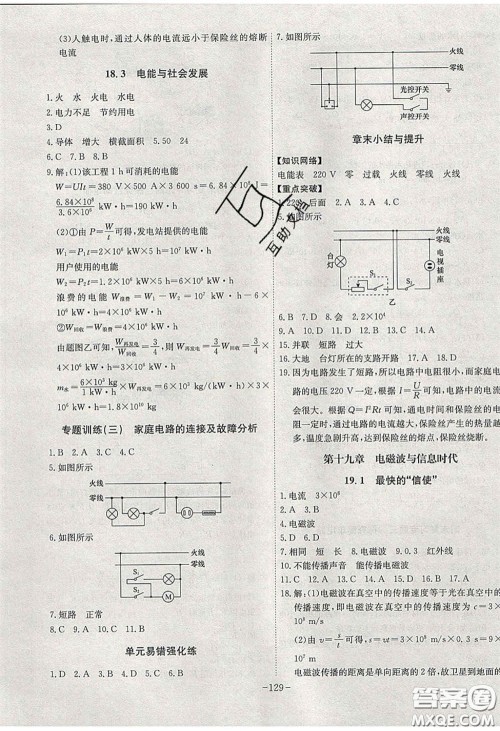 (3)人触电时,通过人体的电流远小于保险丝的熔断
电流
18.3 电能与社会发展
1.火 水 火电 水电
2.电力不足 节约用电
3.D
4.导体 增大 横截面积 5.50 24
6.C 7.B 8.B
9.解:(1)该工程1 h可消耗的电能
W=UIt=380 V×500 A×3 600 s=6.84×10⁸ J=
6.84×10⁸/3.6×10⁶ kW·h=190 kW·h
(2)①由P=W/t可得,发电站提供的电能
W₁=P₁t=2×10⁶ kW×5 h=10⁷ kW·h
用户使用的电能
浪费的电能W浪费=W₁-W₂=10⁷ kW·h-6×
10⁶ kW·h=4×10⁶ kW·h
②W回收=W浪费=4×10⁶ kW·h
由题图乙可知,W再发电/W回收=3/4,所以W再发电=3/4 W回收=3/4
×4×10⁶ kW·h=3×10⁶ kW·h
专题训练(三) 家庭电路的连接及故障分析
1.B 2.C 3.D 4.D
5.如图所示
火线
零线
6.如图所示
火线
零线
S₁
S₂
M
7.短路 正常
8.C 9.C 10.A 11.B
单元易错强化练
1.D 2.A 3.C 4.D 5.D 6.D
7.如图所示
火线
零线
光控开关
声控开关
章末小结与提升
【知识网络】
电能表 220 V 零 过载 火线 零线 火线
【重点突破】
1.220 后面 2.A 3.C 4.A
5.如图所示
火线
零线
台灯
S₁
S₂
电视插座
乙
6.B 7.D 8.会 2.2×10⁴
9.D 10.A 11.B 12.C 13.C 14.B
15.并联 短路 过大
16.大地 台灯所在的支路开路 17.D 18.C
19.因为电路发生了短路,所以电路电阻很小,而家庭电
路的电压220 V一定,根据I=U/R可知,电路中的电流
会很大。根据Q=I²Rt可知,通电时间和保险丝的电
阻一定时,通过电路的电流越大,保险丝产生的热量越
多,温度急剧升高,达到保险丝的熔点,保险丝烧断。
第十九章 电磁波与信息时代
19.1 最快的“信使”
1.电流 3×10⁸
2.D 3.A
4.电磁波
5.D 6.D
7.相同 短 长 8.电磁波 9.0.3 红外线
10.不能传播声音 能 能传播电磁波
11.C 12.A 13.B 14.D 15.D 16.D 17.C
18.解:(1)电磁波在真空中的传播速度等于光在真空中
传播速度,即电磁波在真空中的传播速度是3×
10⁸ m/s
(2)由v=s/t可得,s=vt=3×10⁸ m/s×
10⁷ m
电磁波传播的距离是单向距离的2倍,故卫星到地面的
-129-
互助文档
答案圈
MXQE.COM